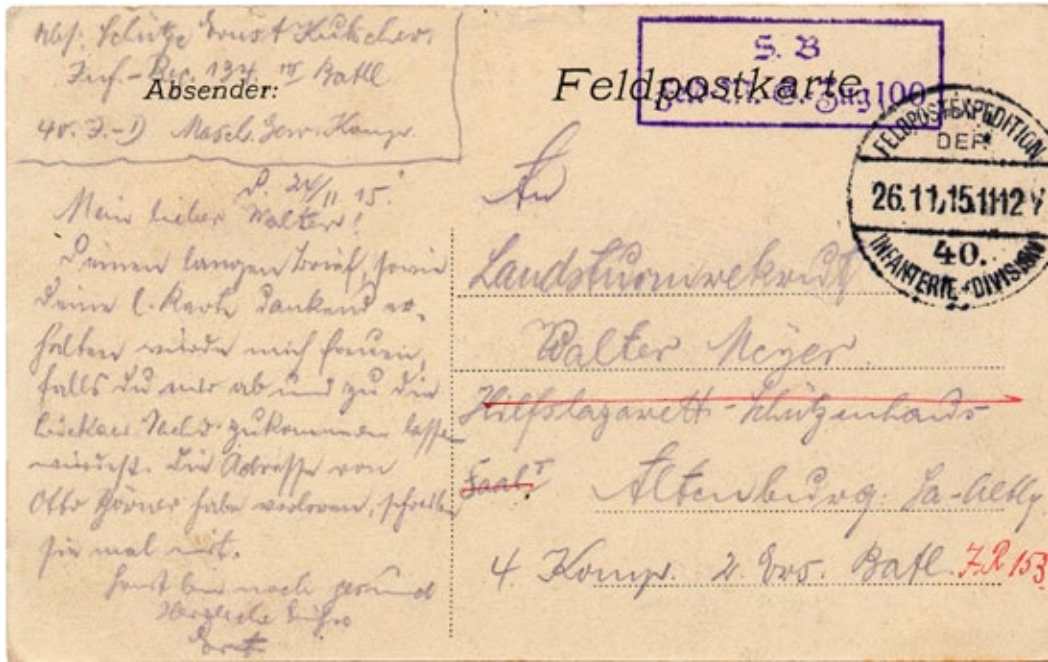 Abs: Schütze Ernst Kutscher
Inf.-Reg. 134. III Batll
Absender:
40. I.-D Masch. Gew. Komp.
Feldpostkarte
S. B
Zug 100
FELDPOSTEXPEDITION
DER
26.11.15.1112V
40.
INFANTERIE-DIVISION
D. 24/11 15.
Mein lieber Walter!
Deinen langen Brief, sowie
Deine l. Karte dankend er-
halten würde mich freuen,
falls du mir ab und zu die
zukommen lassen
würdest. Die Adresse von
Otto Körner habe verloren, schreibe
sie mal mit.
Sonst bin noch gesund
Herzliche Grüße
Ernst
An
Landsturmrekrut
Walter Meyer
Hilfslazarett-Schützenhaus-
Saal I
Altenburg. Sa-Altbg.
4. Komp. 2. Ers. Batl. I.R 153